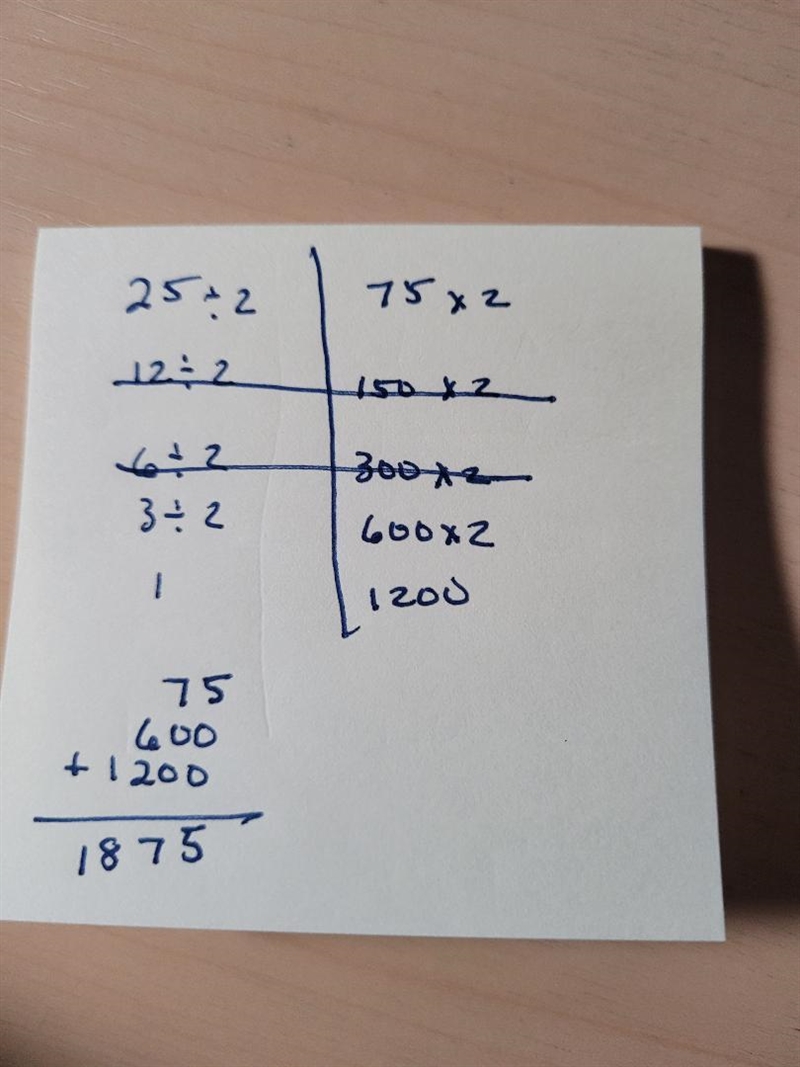 25 ÷ 2 75 x 2
12 ÷ 2 150 x 2
6 ÷ 2 300 x 2
3 ÷ 2 600 x 2
1 1200
75
600
+ 1200
1875